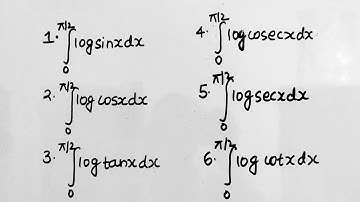 1. ∫₀^π/2 log sinx dx
2. ∫₀^π/2 log cosx dx
3. ∫₀^π/2 log tanx dx
4. ∫₀^π/2 log cosecx dx
5. ∫₀^π/2 log secx dx
6. ∫₀^π/2 log cotx dx